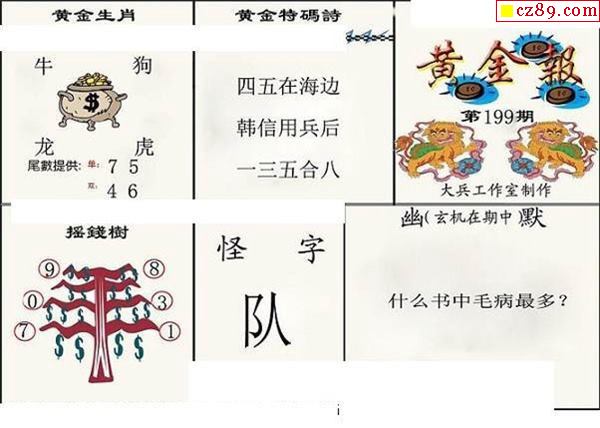 cz89.com
黄金生肖
牛 狗
龙 虎
尾數提供: 单: 7 5
双: 4 6
黄金特碼詩
四五在海边
韩信用兵后
一三五合八
黄金報
第199期
大兵工作室制作
摇錢樹
9 8
0 3
7 1
怪 字
队
幽(玄机在期中)默
什么书中毛病最多?